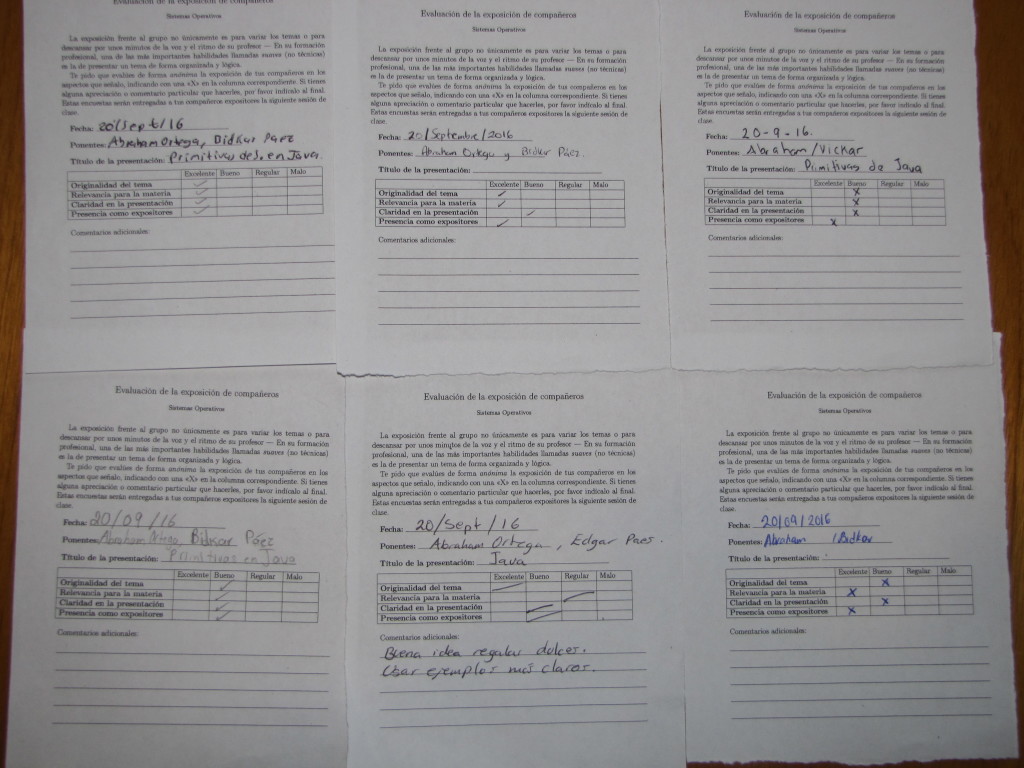 Evaluación de la exposición de compañeros
Sistemas Operativos
La exposición frente al grupo no únicamente es para variar los temas o para
descansar por unos minutos de la voz y el ritmo de su profesor — En su formación
profesional, una de las más importantes habilidades llamadas suaves (no técnicas)
es la de presentar un tema de forma organizada y lógica.
Te pido que evalúes de forma anónima la exposición de tus compañeros en los
aspectos que señalo, indicando con una «X» en la columna correspondiente. Si tienes
alguna apreciación o comentario particular que hacerles, por favor indícalo al final.
Estas encuestas serán entregadas a tus compañeros expositores la siguiente sesión de
clase.
Fecha: 20/Sept/16
Ponentes: Abraham Ortega, Bidkar Paez
Título de la presentación: Primitivas de en Java.
Excelente Bueno Regular Malo
Originalidad del tema
Relevancia para la materia
Claridad en la presentación
Presencia como expositores
Comentarios adicionales:
Evaluación de la exposición de compañeros
Sistemas Operativos
La exposición frente al grupo no únicamente es para variar los temas o para
descansar por unos minutos de la voz y el ritmo de su profesor — En su formación
profesional, una de las más importantes habilidades llamadas suaves (no técnicas)
es la de presentar un tema de forma organizada y lógica.
Te pido que evalúes de forma anónima la exposición de tus compañeros en los
aspectos que señalo, indicando con una «X» en la columna correspondiente. Si tienes
alguna apreciación o comentario particular que hacerles, por favor indícalo al final.
Estas encuestas serán entregadas a tus compañeros expositores la siguiente sesión de
clase.
Fecha: 20/Septiembre/2016
Ponentes: Abraham Ortega y Bidkar Páez.
Título de la presentación:
Excelente Bueno Regular Malo
Originalidad del tema
Relevancia para la materia
Claridad en la presentación
Presencia como expositores
Comentarios adicionales:
Evaluación de la exposición de compañeros
Sistemas Operativos
La exposición frente al grupo no únicamente es para variar los temas o para
descansar por unos minutos de la voz y el ritmo de su profesor — En su formación
profesional, una de las más importantes habilidades llamadas suaves (no técnicas)
es la de presentar un tema de forma organizada y lógica.
Te pido que evalúes de forma anónima la exposición de tus compañeros en los
aspectos que señalo, indicando con una «X» en la columna correspondiente. Si tienes
alguna apreciación o comentario particular que hacerles, por favor indícalo al final.
Estas encuestas serán entregadas a tus compañeros expositores la siguiente sesión de
clase.
Fecha: 20-9-16.
Ponentes: Abraham/Vickar
Título de la presentación: Primitivas de Java
Excelente Bueno Regular Malo
Originalidad del tema X
Relevancia para la materia X
Claridad en la presentación X
Presencia como expositores X
Comentarios adicionales:
Evaluación de la exposición de compañeros
Sistemas Operativos
La exposición frente al grupo no únicamente es para variar los temas o para
descansar por unos minutos de la voz y el ritmo de su profesor — En su formación
profesional, una de las más importantes habilidades llamadas suaves (no técnicas)
es la de presentar un tema de forma organizada y lógica.
Te pido que evalúes de forma anónima la exposición de tus compañeros en los
aspectos que señalo, indicando con una «X» en la columna correspondiente. Si tienes
alguna apreciación o comentario particular que hacerles, por favor indícalo al final.
Estas encuestas serán entregadas a tus compañeros expositores la siguiente sesión de
clase.
Fecha: 20/09/16
Ponentes: Abraham Ortega Bidkar Páez
Título de la presentación: Primitivas en Java
Excelente Bueno Regular Malo
Originalidad del tema
Relevancia para la materia
Claridad en la presentación
Presencia como expositores
Comentarios adicionales:
Evaluación de la exposición de compañeros
Sistemas Operativos
La exposición frente al grupo no únicamente es para variar los temas o para
descansar por unos minutos de la voz y el ritmo de su profesor — En su formación
profesional, una de las más importantes habilidades llamadas suaves (no técnicas)
es la de presentar un tema de forma organizada y lógica.
Te pido que evalúes de forma anónima la exposición de tus compañeros en los
aspectos que señalo, indicando con una «X» en la columna correspondiente. Si tienes
alguna apreciación o comentario particular que hacerles, por favor indícalo al final.
Estas encuestas serán entregadas a tus compañeros expositores la siguiente sesión de
clase.
Fecha: 20/Sept/16
Ponentes: Abraham Ortega, Edgar Paes.
Título de la presentación: Java
Excelente Bueno Regular Malo
Originalidad del tema
Relevancia para la materia
Claridad en la presentación
Presencia como expositores
Comentarios adicionales:
Buena idea regalar dulces.
Usar ejemplos mas claros.
Evaluación de la exposición de compañeros
Sistemas Operativos
La exposición frente al grupo no únicamente es para variar los temas o para
descansar por unos minutos de la voz y el ritmo de su profesor — En su formación
profesional, una de las más importantes habilidades llamadas suaves (no técnicas)
es la de presentar un tema de forma organizada y lógica.
Te pido que evalúes de forma anónima la exposición de tus compañeros en los
aspectos que señalo, indicando con una «X» en la columna correspondiente. Si tienes
alguna apreciación o comentario particular que hacerles, por favor indícalo al final.
Estas encuestas serán entregadas a tus compañeros expositores la siguiente sesión de
clase.
Fecha: 20/09/2016
Ponentes: Abraham /Bidkar
Título de la presentación:
Excelente Bueno Regular Malo
Originalidad del tema X
Relevancia para la materia X
Claridad en la presentación X
Presencia como expositores X
Comentarios adicionales: